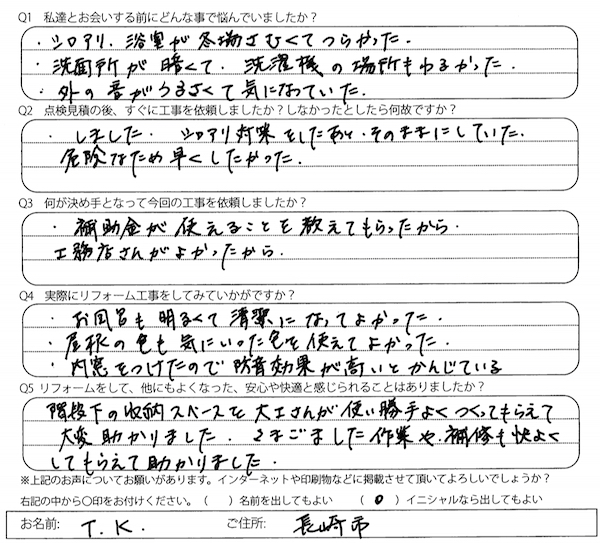 Q1 私達とお会いする前にどんな事で悩んでいましたか？
・シロアリ．浴室が冬場さむくてつらかった．
・洗面所が暗くて．洗濯機の場所もわるかった．
・外の音がうるさくて気になっていた．
Q2 点検見積の後、すぐに工事を依頼しましたか？しなかったとしたら何故ですか？
・しました．シロアリ対策をしたあと．そのままにしていた．
危険なため早くしたかった．
Q3 何が決め手となって今回の工事を依頼しましたか？
・補助金が使えることを教えてもらったから
工務店さんがよかったから．
Q4 実際にリフォーム工事をしてみていかがですか？
・お風呂も明るくて清潔になってよかった．
・屋根の色も気にいった色を使えてよかった．
・内窓をつけたので防音効果が高いとかんじている
Q5 リフォームをして、他にもよくなった、安心や快適と感じられることはありましたか？
階段下の収納スペースを大工さんが使い勝手よくつくってもらえて
大変助かりました．こまごました作業や．補修も快よく
してもらえて助かりました．
※上記のお声についてお願いがあります。インターネットや印刷物などに掲載させて頂いてよろしいでしょうか？
右記の中から〇印をお付けください。（　）名前を出してもよい　（ 0 ）イニシャルなら出してもよい
お名前: T. K.　ご住所: 長崎市